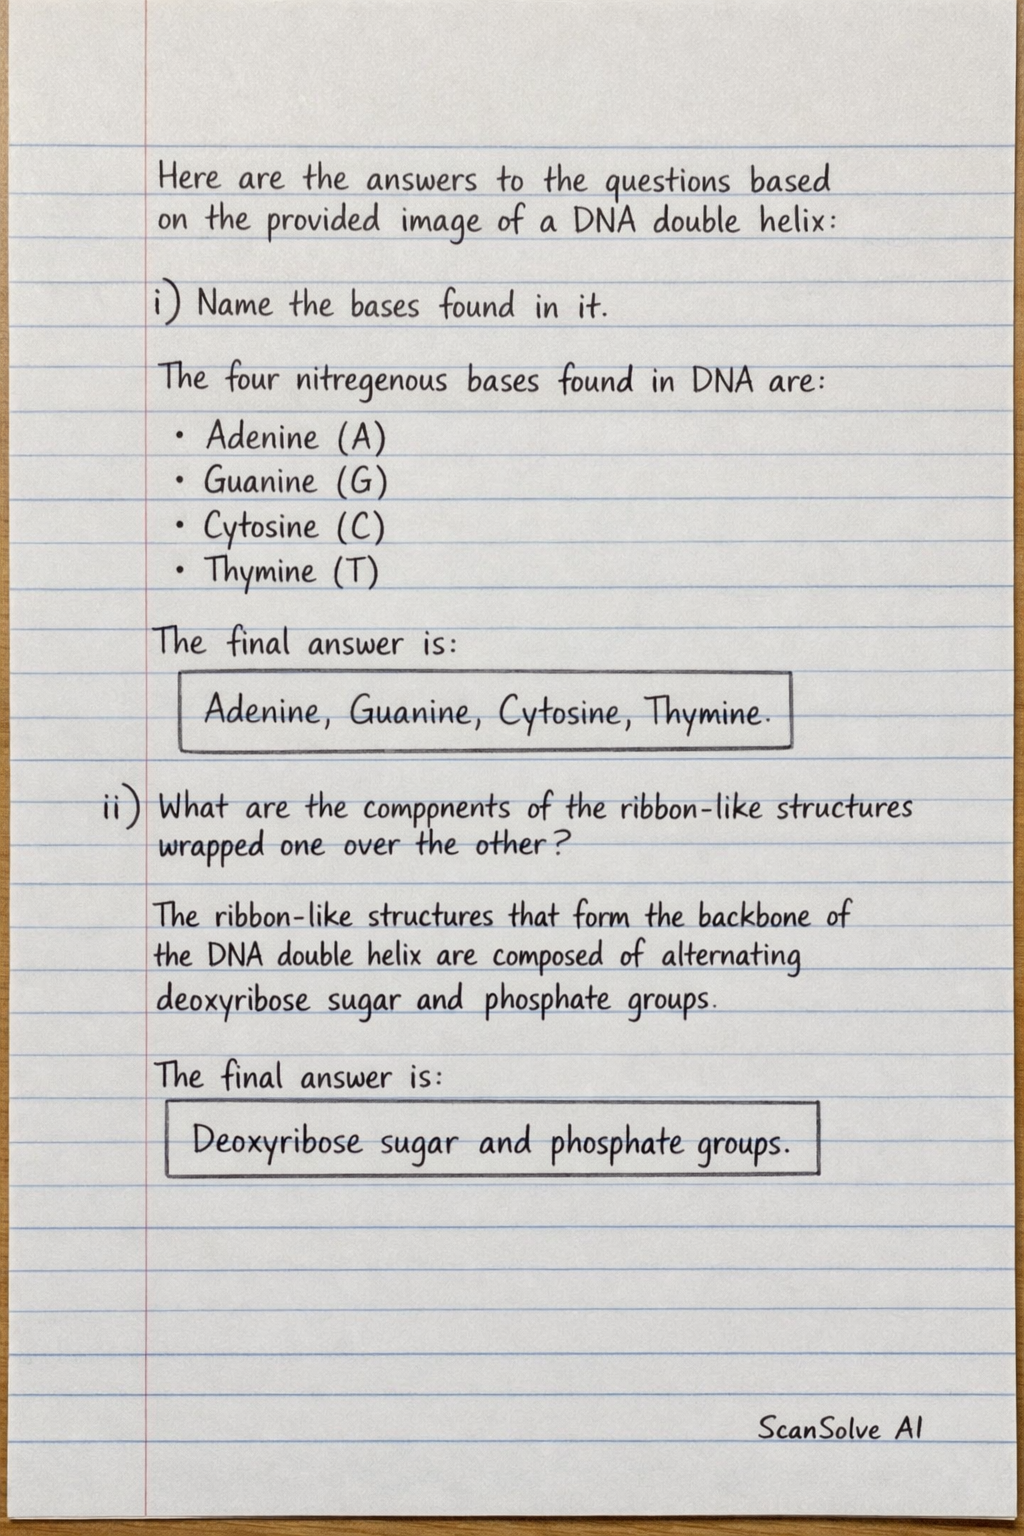 Here are the answers to the questions based
on the provided image of a DNA double helix:
i) Name the bases found in it.
The four nitregenous bases found in DNA are:
• Adenine (A)
• Guanine (G)
• Cytosine (C)
• Thymine (T)
The final answer is:
Adenine, Guanine, Cytosine, Thymine.
ii) What are the comppnents of the ribbon-like structures
wrapped one over the other?
The ribbon-like structures that form the backbone of
the DNA double helix are composed of alternating
deoxyribose sugar and phosphate groups.
The final answer is:
Deoxyribose sugar and phosphate groups.
ScanSolve AI